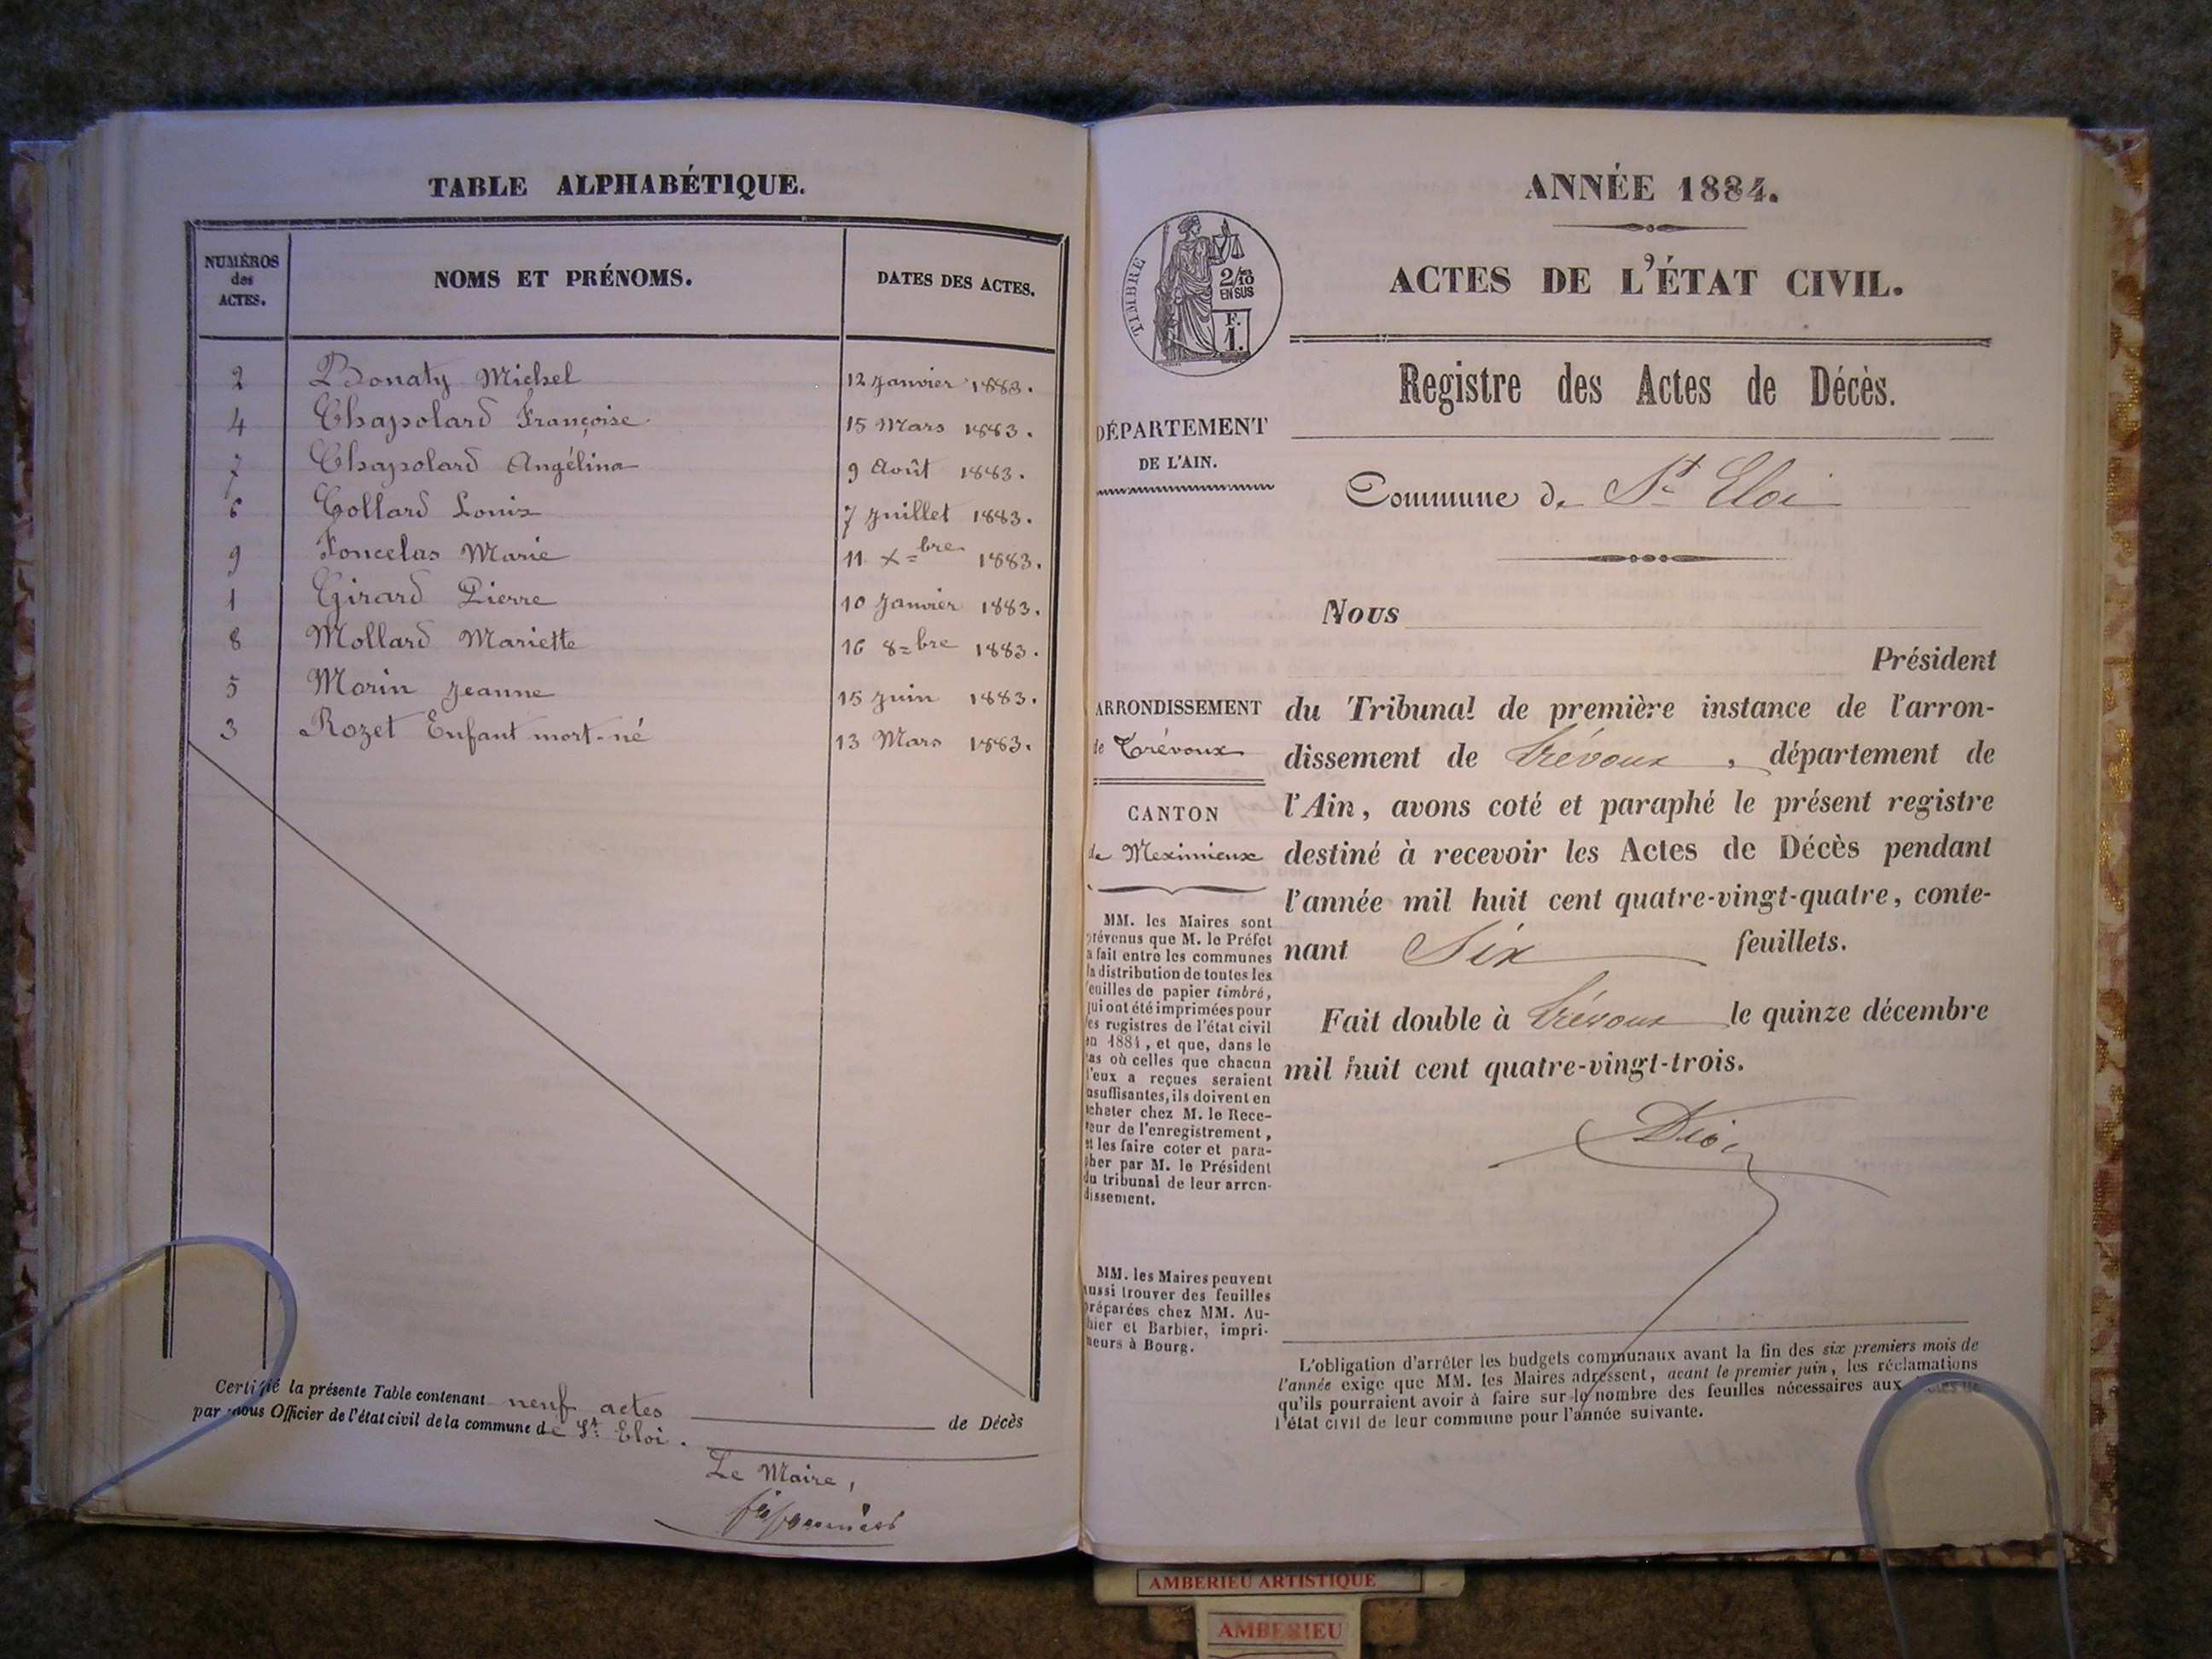 TABLE ALPHABÉTIQUE.
NUMÉROS des ACTES. NOMS ET PRÉNOMS. DATES DES ACTES.
2 Bonaty Michel 12 Janvier 1883.
4 Chapolard Françoise 15 Mars 1883.
7 Chapolard Angélina 9 Août 1883.
6 Collard Louis 7 Juillet 1883.
9 Foncelas Marie 11 X=bre 1883.
1 Girard Pierre 10 Janvier 1883.
8 Mollard Mariette 16 8=bre 1883.
5 Morin Jeanne 15 Juin 1883.
3 Rozet Enfant mort-né 13 Mars 1883.
Certifié la présente Table contenant neuf actes de Décès
par nous Officier de l'état civil de la commune de St. Eloi.
Le Maire,
ANNÉE 1884.
ACTES DE L'ÉTAT CIVIL.
TIMBRE
2/10 es
EN SUS
F.
1.
Registre des Actes de Décès.
DÉPARTEMENT
DE L'AIN.
Commune de St Eloi
Nous
Président
ARRONDISSEMENT
de Trévoux
CANTON
de Meximieux
du Tribunal de première instance de l'arron-
dissement de Trévoux, département de
l'Ain, avons coté et paraphé le présent registre
destiné à recevoir les Actes de Décès pendant
l'année mil huit cent quatre-vingt-quatre, conte-
nant Six feuillets.
Fait double à Trévoux le quinze décembre
mil huit cent quatre-vingt-trois.
MM. les Maires sont
prévenus que M. le Préfet
a fait entre les communes
la distribution de toutes les
feuilles de papier timbré,
qui ont été imprimées pour
les registres de l'état civil
en 1884, et que, dans le
cas où celles que chacun
d'eux a reçues seraient
insuffisantes, ils doivent en
acheter chez M. le Rece-
veur de l'enregistrement,
et les faire coter et para-
pher par M. le Président
du tribunal de leur arron-
dissement.
MM. les Maires peuvent
aussi trouver des feuilles
préparées chez MM. Au-
thier et Barbier, impri-
meurs à Bourg.
L'obligation d'arrêter les budgets communaux avant la fin des six premiers mois de
l'année exige que MM. les Maires adressent, avant le premier juin, les réclamations
qu'ils pourraient avoir à faire sur le nombre des feuilles nécessaires aux
l'état civil de leur commune pour l'année suivante.
AMBERIEU ARTISTIQUE
AMBERIEU